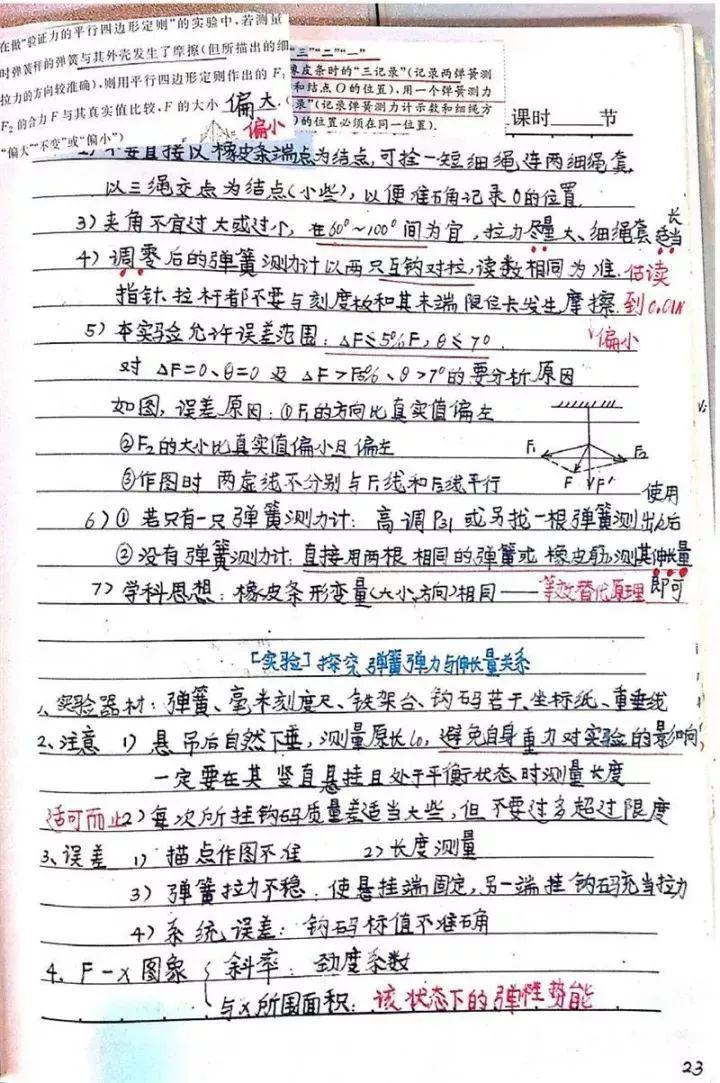 在做“验证力的平行四边形定则”的实验中,若测量
时弹簧秤的弹簧与其外壳发生了摩擦(但所描出的细
拉力的方向较准确),则用平行四边形定则作出的 F₁
F₂的合力 F 与其真实值比较,F 的大小 偏大.(
“偏大”“不变”或“偏小”)
偏小
“三”“二”“一”
皮条时的“三记录”(记录两弹簧测
和结点 O 的位置),用一个弹簧测力
录”(记录弹簧测力计示数和细绳方
的位置必须在同一位置).
课时 节
不要直接以橡皮条端点为结点,可拴一短细绳连两细绳套
以三绳交点为结点(小些),以便准确记录O的位置
3) 夹角不宜过大或过小,在60°~100°间为宜,拉力尽量大、细绳套适当
长
4) 调零后的弹簧测力计以两只互钩对拉,读数相同为准.估读
指针、拉杆都不要与刻度板和其末端限位卡发生摩擦.到0.01N
偏小
5) 本实验允许误差范围:△F≤5%F,θ≤7°.
对 △F=0、θ=0 及 △F>F5%、θ>7°的要分析原因
如图,误差原因:①F₁的方向比真实值偏左
②F₂的大小比真实值偏小且偏左
③作图时 两虚线不分别与F₁线和F₂线平行
F₁ F₂ F F'
6) ① 若只有一只弹簧测力计: 高调P31 或另找一根弹簧测出k后
使用
② 没有弹簧测力计:直接用两根相同的弹簧或橡皮筋,测其伸长量
即可
7) 学科思想:橡皮条形变量(大小、方向)相同——等效替代原理
[实验] 探究弹簧弹力与伸长量关系
1、实验器材:弹簧、毫米刻度尺、铁架台、钩码若干、坐标纸、重垂线
2、注意 1) 悬吊后自然下垂,测量原长l₀,避免自身重力对实验的影响,
一定要在其竖直悬挂且处于平衡状态时测量长度
适可而止 2) 每次所挂钩码质量差适当大些,但不要过多超过限度
3、误差 1) 描点作图不准 2) 长度测量
3) 弹簧拉力不稳:使悬挂端固定,另一端挂钩码充当拉力
4) 系统误差:钩码标值不准确
4. F-x图象 { 斜率:劲度系数
与x所围面积:该状态下的弹性势能
23